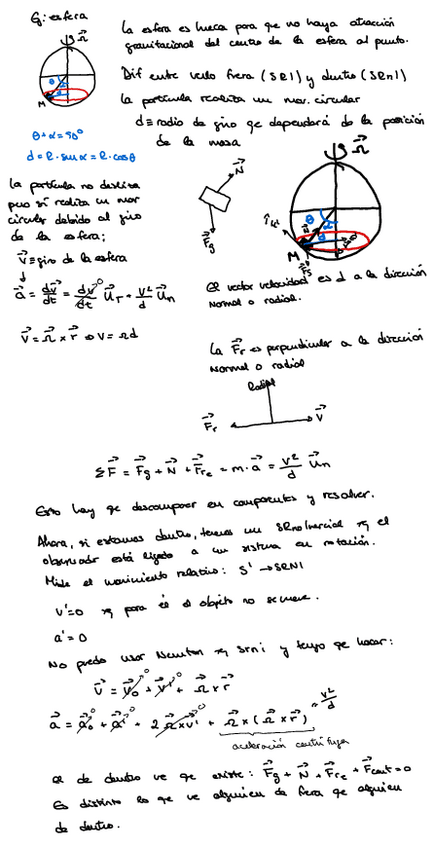 G: esfera
La esfera es hueca para que no haya atracción
gravitacional del centro de la esfera al punto.
Dif entre verlo fuera (SRI) y dentro (SRnI)
La partícula realiza un mov. circular
d ≡ radio de giro qe dependerá de la posición
de la masa
Ω
θ
α
M
θ+α=90°
d = R·senα = R·cosθ
La partícula no desliza
pero sí realiza un mov
circular debido al giro
de la esfera;
v ≡ giro de la esfera
a = dv/dt = dv/dt u_T + v²/d u_n
v = Ω x r → v = Ωd
N
Fg
Ω
M
θ
El vector velocidad es d a la dirección
normal o radial.
La Fr es perpendicular a la dirección
normal o radial
Radial
Fr
v
ΣF = Fg + N + Fre = m·a = v²/d u_n
Esto hay qe descomponer en componentes y resolver.
Ahora, si estamos dentro, tenemos un SRnoInercial xq el
observador está ligado a un sistema en rotación.
Mide el movimiento relativo: S' → SRNI
v'=0 xq para él el objeto no se mueve.
a'=0
No puedo usar Newton xq srni y tengo qe hacer:
v = v₀ + v' + Ω x r
a = a₀ + a' + 2Ω x v' + Ω x (Ω x r) = v²/d
aceleración centrífuga
El de dentro ve qe existe: Fg + N + Fre + Fcent = 0
Es distinto lo qe ve alguien de fuera qe alguien
de dentro.